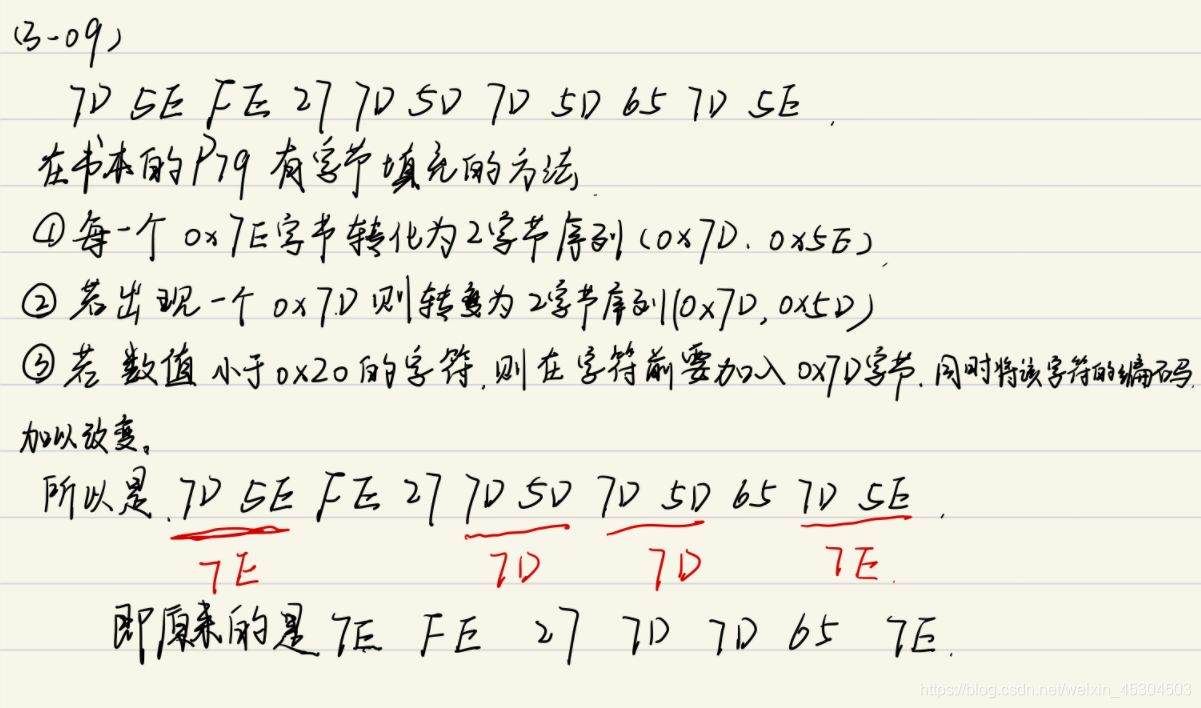 (3-09)
7D 5E FE 27 7D 5D 7D 5D 65 7D 5E.
在书本的P79有字节填充的方法.
①每一个0x7E字节转化为2字节序列(0x7D.0x5E).
②若出现一个0x7D则转变为2字节序列(0x7D,0x5D)
③若数值小于0x20的字符,则在字符前要加入0x7D字节.同时将该字符的编码.
加以改变。
所以是.7D 5E FE 27 7D 5D 7D 5D 65 7D 5E.
7E 7D 7D 7E.
即原来的是 7E FE 27 7D 7D 65 7E.
https://blog.csdn.net/weixin_45304503